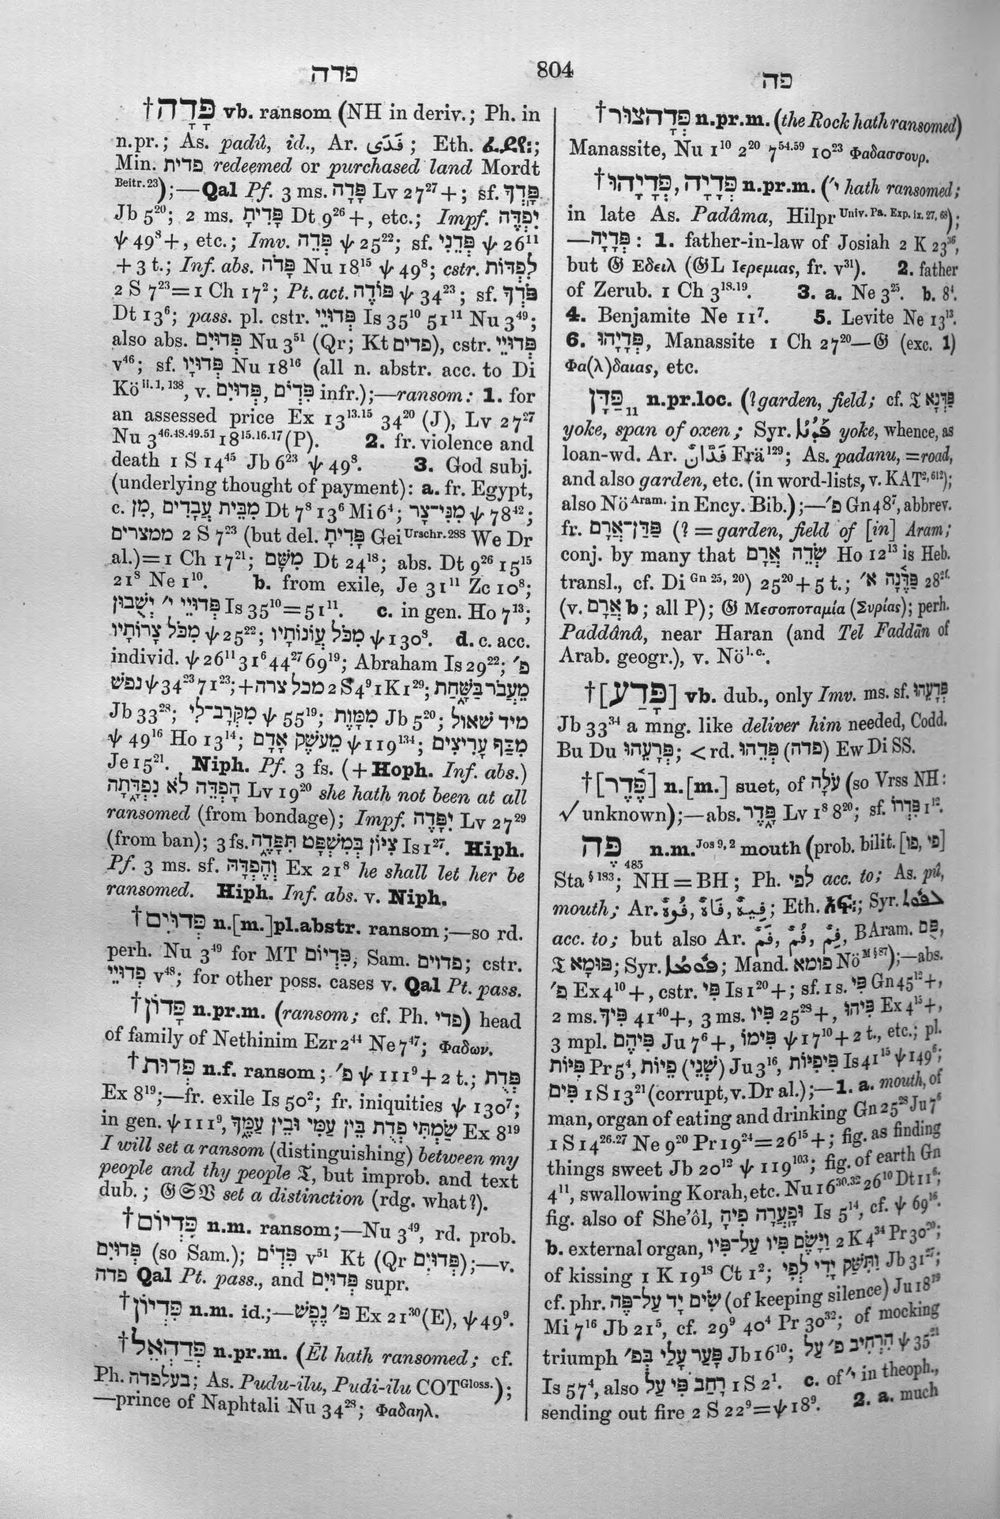 פדה
804
פה
† פָּדָה vb. ransom (NH in deriv.; Ph. in
n.pr.; As. padû, id., Ar. فَدَى; Eth.
Min. פדית redeemed or purchased land Mordt
Beitr. 23);—Qal Pf. 3 ms. פָּדָה Lv 27²⁷+; sf. פָּֽדְךָ
Jb 5²⁰; 2 ms. פָּדִיתָ Dt 9²⁶+, etc.; Impf. יִפְדֶּה
ψ 49⁸+, etc.; Imv. פְּדֵה ψ 25²²; sf. פְּדֵנִי ψ 26¹¹
+3 t.; Inf. abs. פָּדֹה Nu 18¹⁵ ψ 49⁸; cstr. לִפְדּוֹת
2 S 7²³=1 Ch 17²; Pt. act. פּוֹדֶה ψ 34²³; sf. פֹּדְךָ
Dt 13⁶; pass. pl. cstr. פְּדוּיֵי Is 35¹⁰ 51¹¹ Nu 3⁴⁹;
also abs. פְּדוּיִם Nu 3⁵¹ (Qr; Kt פדים), cstr. פְּדוּיֵי
v⁴⁶; sf. פְּדוּיָו Nu 18¹⁶ (all n. abstr. acc. to Di
Kö ii. 1, 138, v. פְּדוּיִם, פִּדְיֹם infr.);—ransom: 1. for
an assessed price Ex 13¹³·¹⁵ 34²⁰ (J), Lv 27²⁷
Nu 3⁴⁶·⁴⁸·⁴⁹·⁵¹ 18¹⁵·¹⁶·¹⁷ (P). 2. fr. violence and
death 1 S 14⁴⁵ Jb 6²³ ψ 49⁸. 3. God subj.
(underlying thought of payment): a. fr. Egypt,
c. מִבֵּית עֲבָדִים, מִן Dt 7⁸ 13⁶ Mi 6⁴; מִנִּי־צָר ψ 78⁴²;
ממצרים 2 S 7²³ (but del. פָּדִיתָ Gei Urschr. 288 We Dr
al.)=1 Ch 17²¹; מִשָּׁם Dt 24¹⁸; abs. Dt 9²⁶ 15¹⁵
21⁸ Ne 1¹⁰. b. from exile, Je 31¹¹ Zc 10⁸;
פְּדוּיֵי י׳ יְשֻׁבוּן Is 35¹⁰=51¹¹. c. in gen. Ho 7¹³;
מִכֹּל צָרוֹתָיו ψ 25²²; מִכֹּל עֲוֹנוֹתָיו ψ 130⁸. d. c. acc.
individ. ψ 26¹¹ 31⁶ 44²⁷ 69¹⁹; Abraham Is 29²²; פ׳
נפש ψ 34²³ 71²³; + מכל צרה 2 S 4⁹ 1 K 1²⁹; מֵעֲבֹר בַּשַּׁחַת
Jb 33²⁸; מִקְּרָב־לִי ψ 55¹⁹; מִמָּוֶת Jb 5²⁰; מיד שאול
ψ 49¹⁶ Ho 13¹⁴; מֵעֹשֶׁק אָדָם ψ 119¹³⁴; מִכַּף עָרִיצִים
Je 15²¹. Niph. Pf. 3 fs. (+Hoph. Inf. abs.)
הָפְדֵּה לֹא נִפְדָּתָה Lv 19²⁰ she hath not been at all
ransomed (from bondage); Impf. יִפָּדֶה Lv 27²⁹
(from ban); 3 fs. צִיּוֹן בְּמִשְׁפָּט תִּפָּדֶה Is 1²⁷. Hiph.
Pf. 3 ms. sf. וְהֶפְדָּהּ Ex 21⁸ he shall let her be
ransomed. Hiph. Inf. abs. v. Niph.
† פְּדוּיִם n.[m.]pl.abstr. ransom;—so rd.
perh. Nu 3⁴⁹ for MT פִּדְיוֹם, Sam. פדוים; cstr.
פְּדוּיֵי v⁴⁸; for other poss. cases v. Qal Pt. pass.
† פָּדוֹן n.pr.m. (ransom; cf. Ph. פדי) head
of family of Nethinim Ezr 2⁴⁴ Ne 7⁴⁷; Φαδων.
† פְּדוּת n.f. ransom;—פ׳ ψ 111⁹+2 t.; פְּדֻת
Ex 8¹⁹;—fr. exile Is 50²; fr. iniquities ψ 130⁷;
in gen. ψ 111⁹, שַׂמְתִּי פְדֻת בֵּין עַמִּי וּבֵין עַמֶּךָ Ex 8¹⁹
I will set a ransom (distinguishing) between my
people and thy people 𝔗, but improb. and text
dub.; 𝔊𝔖𝔙 set a distinction (rdg. what?).
† פִּדְיוֹם n.m. ransom;—Nu 3⁴⁹, rd. prob.
פְּדוּיִם (so Sam.); פִּדְיֹם v⁵¹ Kt (Qr פְּדוּיִם);—v.
פדה Qal Pt. pass., and פְּדוּיִם supr.
† פִּדְיוֹן n.m. id.;—פ׳ נֶפֶשׁ Ex 21³⁰ (E), ψ 49⁹.
† פְּדַהְאֵל n.pr.m. (Ēl hath ransomed; cf.
Ph. בעלפדה; As. Pudu-ilu, Pudi-ilu COT Gloss.);
—prince of Naphtali Nu 34²⁸; Φαδαηλ.
† פְּדָהצוּר n.pr.m. (the Rock hath ransomed)
Manassite, Nu 1¹⁰ 2²⁰ 7⁵⁴·⁵⁹ 10²³ Φαδασσουρ.
† פְּדָיָה, פְּדָיָהוּ n.pr.m. (י׳ hath ransomed;
in late As. Padâma, Hilpr Univ. Pa. Exp. ix. 27, 68);
—פְּדָיָה: 1. father-in-law of Josiah 2 K 23³⁶,
but 𝔊 Εδειλ (𝔊L Ιερεμιας, fr. v³¹). 2. father
of Zerub. 1 Ch 3¹⁸·¹⁹. 3. a. Ne 3²⁵. b. 8⁴.
4. Benjamite Ne 11⁷. 5. Levite Ne 13¹³.
6. פְּדָיָהוּ, Manassite 1 Ch 27²⁰—𝔊 (exc. 1)
Φα(λ)δαιας, etc.
פַּדָּן 11 n.pr.loc. (? garden, field; cf. 𝔗 פַּדָּנָא
yoke, span of oxen; Syr. yoke, whence, as
loan-wd. Ar. فَدَّانٌ Frä 129; As. padanu, =road,
and also garden, etc. (in word-lists, v. KAT 2, 612);
also Nö Aram. in Ency. Bib.);—פ׳ Gn 48⁷, abbrev.
fr. פַּדַּן־אֲרָם (? =garden, field of [in] Aram;
conj. by many that שְׂדֵה אֲרָם Ho 12¹³ is Heb.
transl., cf. Di Gn 25, 20) 25²⁰+5 t.; פַּדֶּנָה א׳ 28²f.
(v. אֲרָם b; all P); 𝔊 Μεσοποταμία (Συρίας); perh.
Paddânâ, near Haran (and Tel Faddân of
Arab. geogr.), v. Nö l.c.
† [פָּדַע] vb. dub., only Imv. ms. sf. פְּדָעֵהוּ
Jb 33³⁴ a mng. like deliver him needed, Codd.
Bu Du פְּרָעֵהוּ; < rd. פְּדֵהוּ (פדה) Ew Di SS.
† [פֶּדֶר] n.[m.] suet, of עֹלָה (so Vrss NH:
√ unknown);—abs. פָּדֶר Lv 1⁸ 8²⁰; sf. פִּדְרוֹ 1¹².
פֶּה 485 n.m. Jos 9, 2 mouth (prob. bilit. [פִי, פִ]
Sta § 183; NH=BH; Ph. לפי acc. to; As. pû,
mouth; Ar. فُوهٌ, فَاهٌ, فِيهٌ; Eth. አፍ; Syr.
acc. to; but also Ar. فَمٌ, فُمٌ, فِمٌ, BAram. פֻּם,
𝔗 פּוּמָא; Syr. ; Mand. פומא Nö M § 87);—abs.
פ׳ Ex 4¹⁰+, cstr. פִּי Is 1²⁰+; sf. 1 s. פִּי Gn 45¹²+,
2 ms. פִּיךָ 41⁴⁰+, 3 ms. פִּיו 25²⁸+, פִּיהוּ Ex 4¹⁵+,
3 mpl. פִּיהֶם Ju 7⁶+, פִּימוֹ ψ 17¹⁰+2 t., etc.; pl.
פִּיּוֹת Pr 5⁴, פֵּיוֹת (שְׁנֵי) Ju 3¹⁶, פִּיפִיּוֹת Is 41¹⁵ ψ 149⁶;
פִּים 1 S 13²¹ (corrupt, v. Dr al.);—1. a. mouth, of
man, organ of eating and drinking Gn 25²⁸ Ju 7⁶
1 S 14²⁶·²⁷ Ne 9²⁰ Pr 19²⁴=26¹⁵+; fig. as finding
things sweet Jb 20¹² ψ 119¹⁰³; fig. of earth Gn
4¹¹, swallowing Korah, etc. Nu 16³⁰·³² 26¹⁰ Dt 11⁶;
fig. also of She'ôl, וּפָעֲרָה פִיהָ Is 5¹⁴, cf. ψ 69¹⁶.
b. external organ, וַיָּשֶׂם פִּיו עַל־פִּיו 2 K 4³⁴ Pr 30²⁰;
of kissing 1 K 19¹⁸ Ct 1²; וַתִּשַּׁק יָדִי לְפִי Jb 31²⁷;
cf. phr. שִׂים יָד עַל־פֶּה (of keeping silence) Ju 18¹⁹
Mi 7¹⁶ Jb 21⁵, cf. 29⁹ 40⁴ Pr 30³²; of mocking
triumph פָּעַר עָלַי בְּפ׳ Jb 16¹⁰; הִרְחִיב פ׳ עַל ψ 35²¹
Is 57⁴, also רָחַב פִּי עַל 1 S 2¹. c. of י׳ in theoph.,
sending out fire 2 S 22⁹=ψ 18⁹. 2. a. much